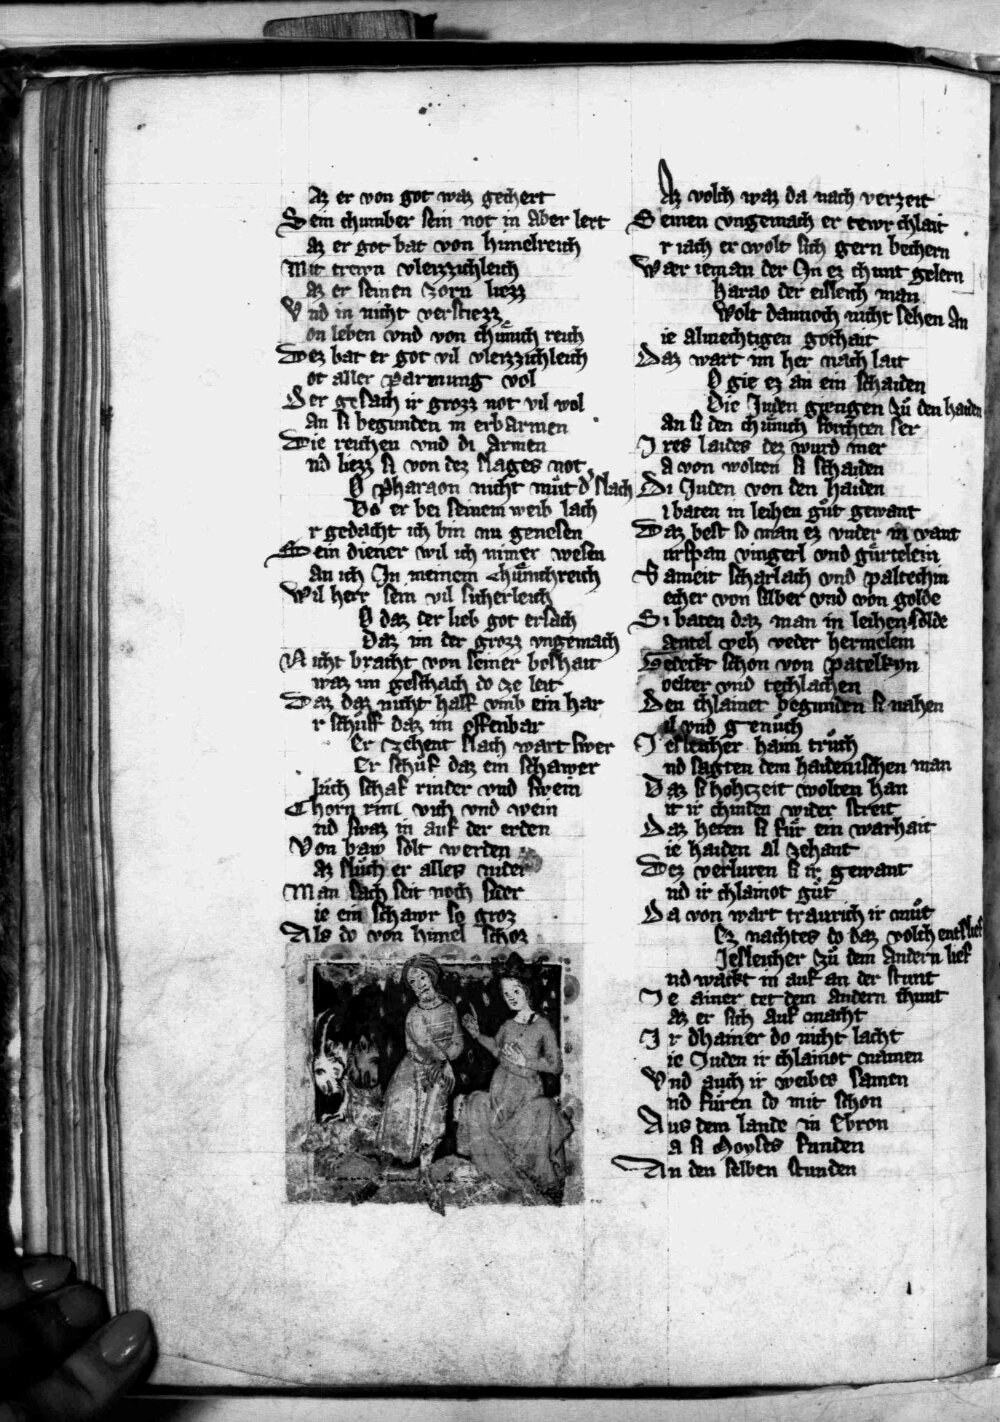 Az er von got waz gechert
Sein chumber sein not in aber lert
az er got bat von himelreich
Mit trewn vleizzichleich
az er seinen zorn liezz
Vnd in nicht verstiezz
on leben vnd von chünich reich
Dez bat er got vil vleizzichleich
ot aller parmung vol
Der gesach ir grozz not vil wol
an si begunden in erbarmen
Die reichen vnd di armen
nd liezz si von dez slages not
O pharaon nicht müt d slach
Do er bei seinem weib lach
r gedacht ich bin nu genesen
Sein diener wil ich nimer wesen
an ich In meinem chünichreich
Wil herr sein vil sicherleich
O daz der lieb got ersach
Daz im der grozz vngemach
Nicht bracht von seiner boshait
waz im geschach do ze leit
Daz daz nicht half vmb ein har
r schüff daz im offenbar
Er zehent slach wart swer
Er schüf daz ein schawer
lüch schaf rinder vnd swein
Chorn vich vnd wein
nd swaz in auf der erden
Von baw solt werden
az slüch er alles nider
Man sach seit noch sider
ie ein schawr so groz
Als do von himel schoz
Az volch waz da nach verzeit
Seinen vngemach er tewr chlait
r iach er wolt sich gern bechern
Waer ieman der In ez chunt gelern
harao der eisleich man
Wolt dannoch nicht sehen an
ie almechtigen gothait
Daz wart im her nach lait
O gie ez an ein schaiden
Die Juden giengen zü den haiden
an si den chünich forchten ser
Ires laides dez wurd mer
a von wolten si schaiden
Di Juden von den haiden
i baten in leihen güt gewant
Daz best so man ez vnder in vant
urspan vingerl vnd gürtelein
Sameit scharlach vnd paltechin
echer von silber vnd von golde
Si baten daz man in leihen solde
aentel veh veder hermelein
Bedeckt schon von patelkyn
oelter vnd techlachen
Den chlainet begunden si nahen
il vnd genüch
Iesleicher haim trüch
nd sagten dem haidenischen man
Daz si hohtzeit wolten han
it ir chinden wider streit
Daz heten si für ein warhait
ie haiden al zehant
Dez verluren si ir gewant
nd ir chlainot güt
Da von wart traurich ir müt
Ez nachtes do daz volch entslief
Iesleicher zü dem andern lief
nd wackt in auf an der stunt
Ie ainer tet dem andern chunt
az er sich auf macht
Ir dhainer do nicht lacht
ie Juden ir chlainot namen
Vnd auch ir weibes samen
nd füren do mit schon
Aus dem lande in Ebron
a si Moyses funden
An den selben stunden